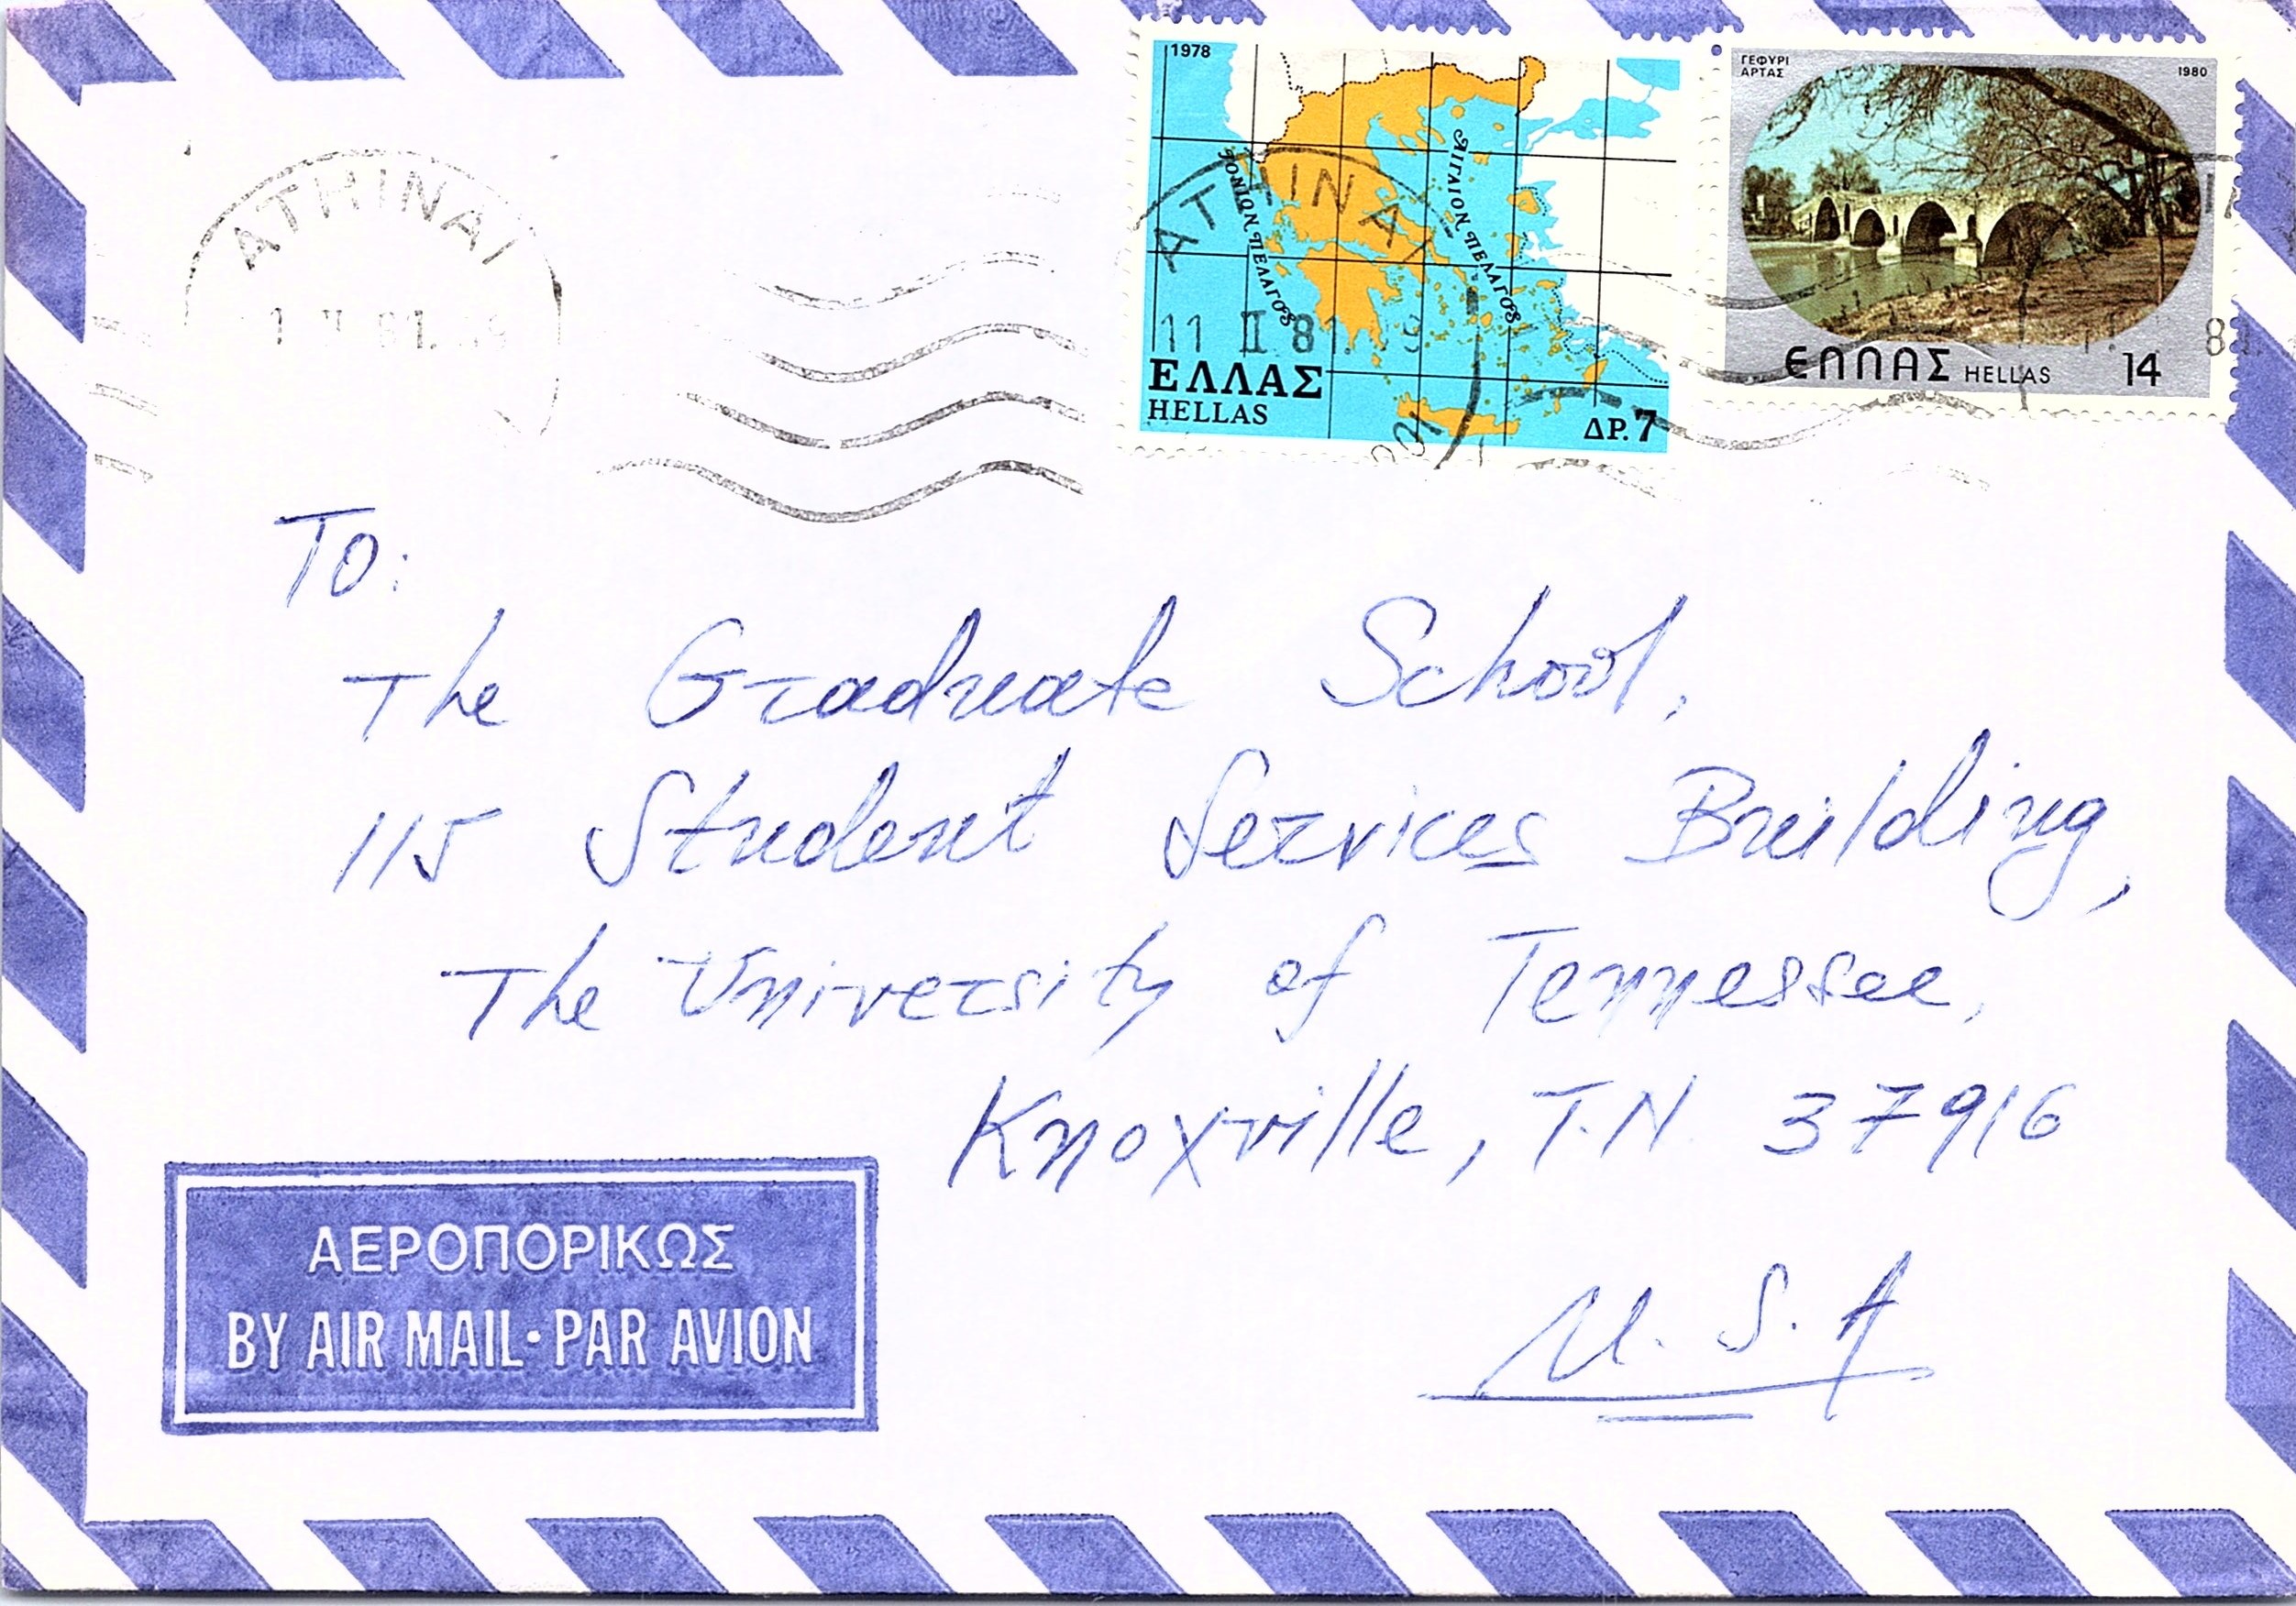 ATHINAI
1978
ΙΟΝΙΟΝ ΠΕΛΑΓΟΣ
ΑΙΓΑΙΟΝ ΠΕΛΑΓΟΣ
ATHINAI
11 II 81
ΕΛΛΑΣ
HELLAS
ΔΡ. 7
ΓΕΦΥΡΙ
ΑΡΤΑΣ
1980
ΕΛΛΑΣ HELLAS 14
To:
The Graduate School,
115 Student Services Building,
The University of Tennessee,
Knoxville, T.N. 37916
U.S.A
ΑΕΡΟΠΟΡΙΚΩΣ
BY AIR MAIL·PAR AVION